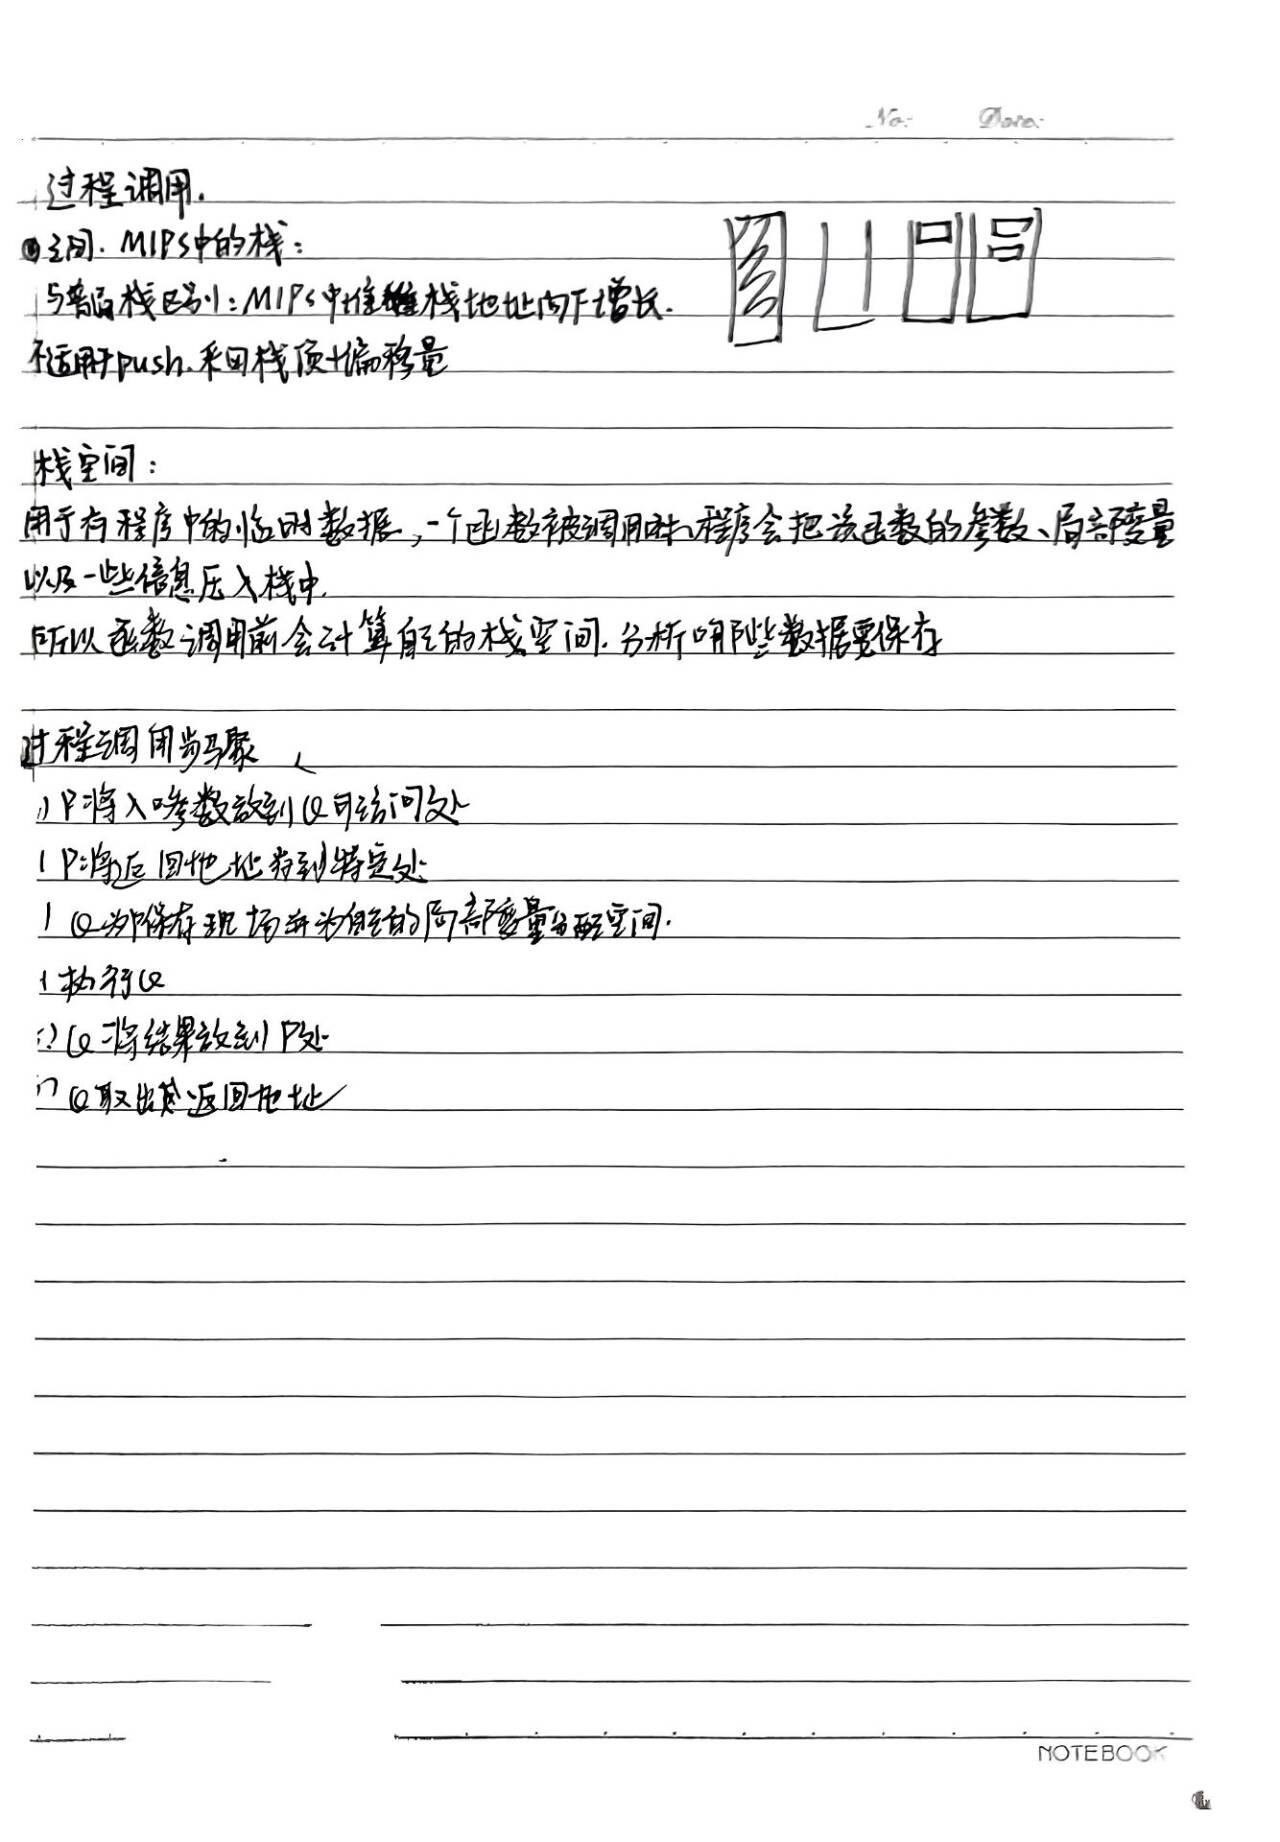 No: Date:
过程调用.
空间. MIPS中的栈:
与普通栈区别:MIPS中堆栈地址向下增长.
不适用于push.采用栈顶+偏移量
栈空间:
用于存程序中的临时数据,一个函数被调用时,程序会把该函数的参数、局部变量
以及一些信息压入栈中.
所以函数调用前会计算自己的栈空间.分析哪些数据要保存
过程调用步骤
) P将入口参数放到Q可访问处
P将返回地址存到特定处
Q为P保存现场并为自己的局部变量分配空间.
执行Q
) Q将结果放到P处
Q取出其返回地址
NOTEBOOK